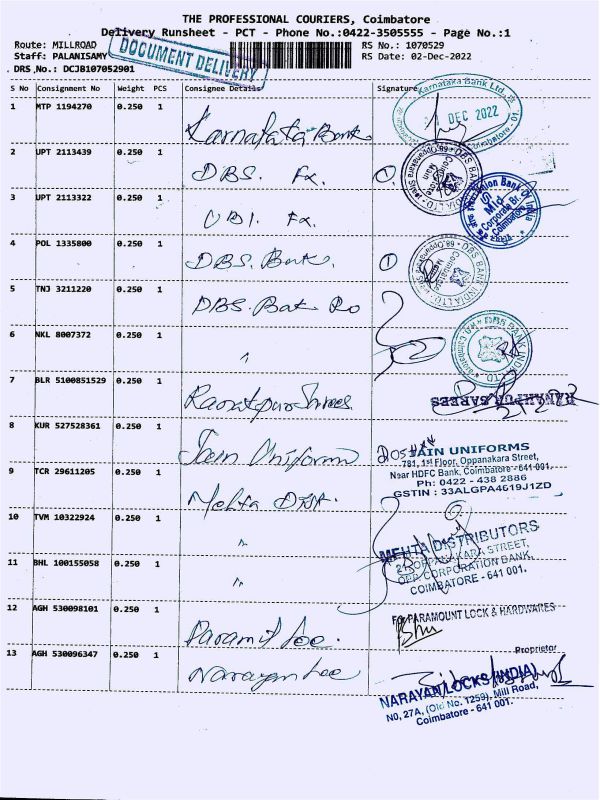 THE PROFESSIONAL COURIERS, Coimbatore
Delivery Runsheet - PCT - Phone No.:0422-3505555 - Page No.:1
Route: MILLROAD
RS No.: 1070529
Staff: PALANISAMY
RS Date: 02-Dec-2022
DOCUMENT DELIVERY
DRS No.: DCJB107052901
S No Consignment No Weight PCS Consignee Details Signature
1 MTP 1194270 0.250 1 Karnataka Bank
Karnataka Bank Ltd.
DEC 2022
Coimbatore
2 UPT 2113439 0.250 1 DBS. Fx. 1
DBS BANK INDIA LTD
Coimbatore Main
3 UPT 2113322 0.250 1 UBI. Fx.
Union Bank Of India
Mid Corporate Br.
Coimbatore
4 POL 1335800 0.250 1 DBS. Bank. 1
DBS BANK INDIA LTD
Coimbatore
5 TNJ 3211220 0.250 1 DBS. Ro
DBS BANK INDIA LTD
6 NKL 8007372 0.250 1 "
7 BLR 5100851529 0.250 1
SAREES
8 KUR 527528361 0.250 1 Jain Uniform
JAIN UNIFORMS
781, 1st Floor, Oppanakara Street,
Near HDFC Bank, Coimbatore - 641 001.
Ph: 0422 - 438 2886
GSTIN : 33ALGPA4619J1ZD
9 TCR 29611205 0.250 1 Mehta
10 TVM 10322924 0.250 1 "
MEHTA DISTRIBUTORS
OPPANAKARA STREET,
OPP CORPORATION BANK,
COIMBATORE - 641 001.
11 BHL 100155058 0.250 1 "
12 AGH 530098101 0.250 1
For PARAMOUNT LOCK & HARDWARES
Proprietor
13 AGH 530096347 0.250 1 Narayan
NARAYAN LOCKS (INDIA)
NO, 27A, (Old No. 1259), Mill Road,
Coimbatore - 641 001.